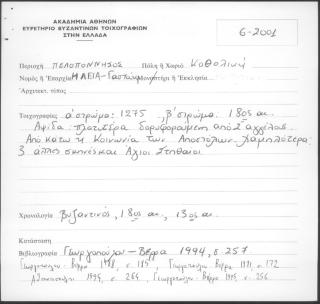 ΑΚΑΔΗΜΙΑ ΑΘΗΝΩΝ
ΕΥΡΕΤΗΡΙΟ ΒΥΖΑΝΤΙΝΩΝ ΤΟΙΧΟΓΡΑΦΙΩΝ
ΣΤΗΝ ΕΛΛΑΔΑ
6-2001
Περιοχή ΠΕΛΟΠΟΝΝΗΣΟΣ Πόλη ἤ Χωριό Καθολική
Νομός ἤ Ἐπαρχία ΗΛΕΙΑ-Γαστούνη Μοναστήρι ἤ Ἐκκλησία
Ἀρχιτεκτ. τύπος
Τοιχογραφίες α' στρώμα: 1275 , β' στρώμα: 18ος αι.
Αψίδα: Πλατυτέρα δορυφορούμενη από 2 αγγέλους.
Από κάτω η Κοινωνία των Αποστόλων. Χαμηλότερα:
3 άλλες σκηνές και Άγιοι Στηθαίοι
Χρονολογία Βυζαντινός, 18ος αι., 13ος αι.
Κατάσταση
Βιβλιογραφία Γεωργοπούλου-Βέρρα 1994, σ 257
Γεωργοπούλου-Βέρρα 1988, σ. 195, Γεωργοπούλου-Βέρρα σ. 172
1995, σ. 264, 1995, σ. 256